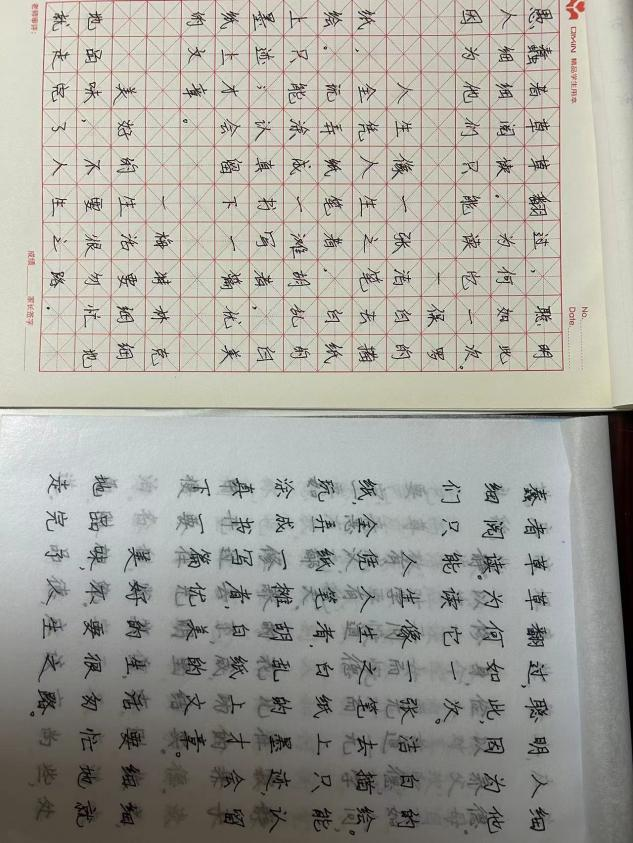 DIMIN 精品学生用本
No.
Date.
思,蠢者草草翻过,聪明
人细细阅读。为何如此
因为他们只能读它一次。
一保罗
人生像一张洁白的
纸,全凭人生之笔去描
绘。玩弄纸笔者,白纸
上只能涂成一滩胡乱的
墨迹;认真书写者,白
纸上才会留下一篇优美
的文章。
一梅特林克
美好的生活要细细
地品味,不要很匆忙地
就走完了人生之路。
老师审评:
成绩
家长签字
蠢者草草翻过,聪明人细
细阅读。为何如此,因为他
们只能读它一次。
人生像一张洁白的
纸,全凭人生之笔去描绘。
玩弄纸笔者,白纸上只能
涂成一摊胡乱的墨迹,认
真书写者,白纸上才会留
下一篇优美的文章。
美好的生活要细细
地品味,不要很匆忙地就
走完人生之路。